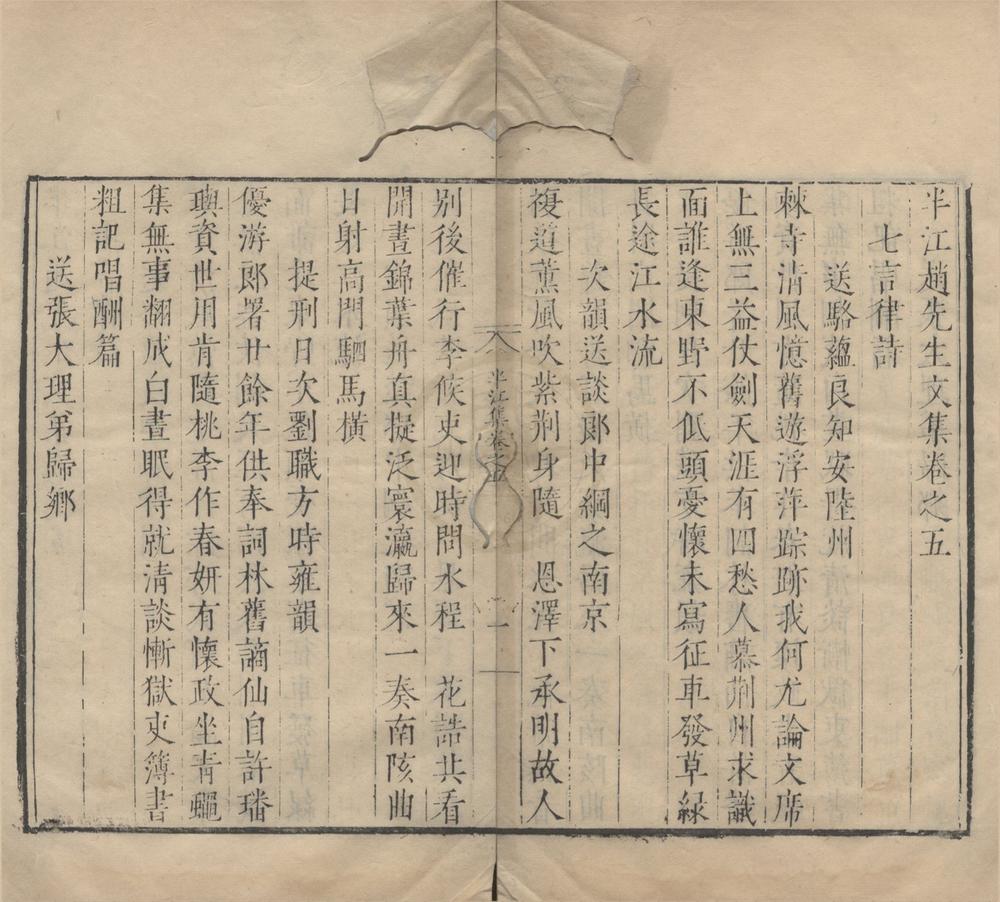 半江趙先生文集卷之五
七言律詩
送駱蘊良知安陸州
棘寺清風憶舊遊浮萍踪跡我何尤論文席
上無三益仗劍天涯有四愁人慕荆州求識
面誰逢東野不低頭憂懷未寫征車發草緑
長途江水流
次韻送談郎中綱之南京
複道薰風吹紫荆身隨 恩澤下承明故人
半江集卷之五
一
别後催行李候吏迎時問水程 花誥共看
開晝錦葉舟真擬泛寰瀛歸來一奏南陔曲
日射高門駟馬橫
提刑日次劉職方時雍韻
優游郎署廿餘年供奉詞林舊謫仙自許璠
璵資世用肯隨桃李作春妍有懷政坐青蠅
集無事翻成白晝眠得就清談慚獄吏簿書
粗記唱酬篇
送張大理弟歸鄉